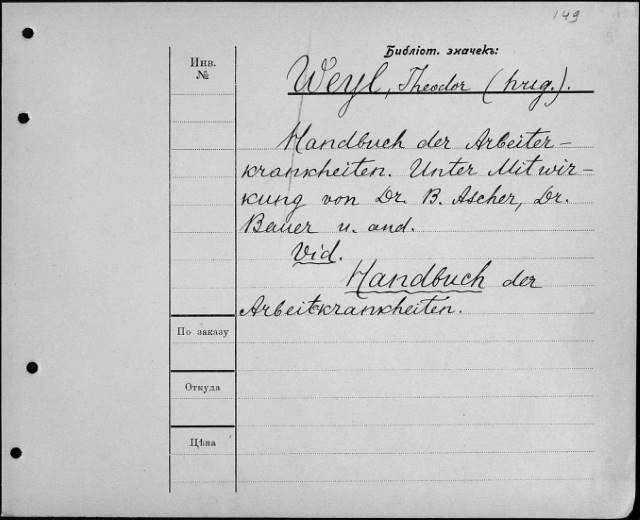 149
Библіот. значекъ:
Инв.
№
Weyl, Theodor (hrsg.).
Handbuch der Arbeiter-
krankheiten. Unter Mitwir-
kung von Dr. B. Ascher, Dr.
Bauer u. and.
Vid.
Handbuch der
Arbeitkrankheiten.
По заказу
Откуда
Цѣна